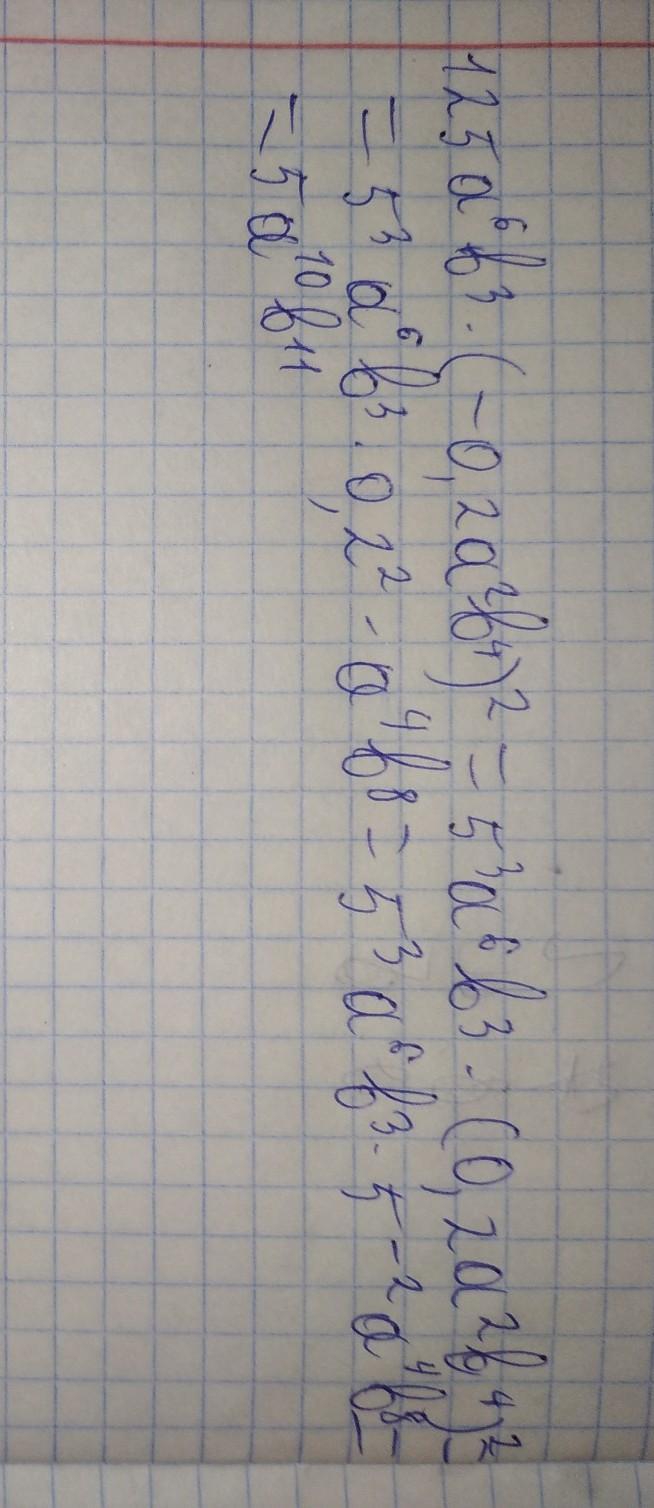 125a⁶b³·(-0,2a²b⁴)² = 5³a⁶b³·(0,2a²b⁴)² =
= 5³a⁶b³·0,2²·a⁴b⁸ = 5³a⁶b³·5⁻²a⁴b⁸ =
= 5a¹⁰b¹¹